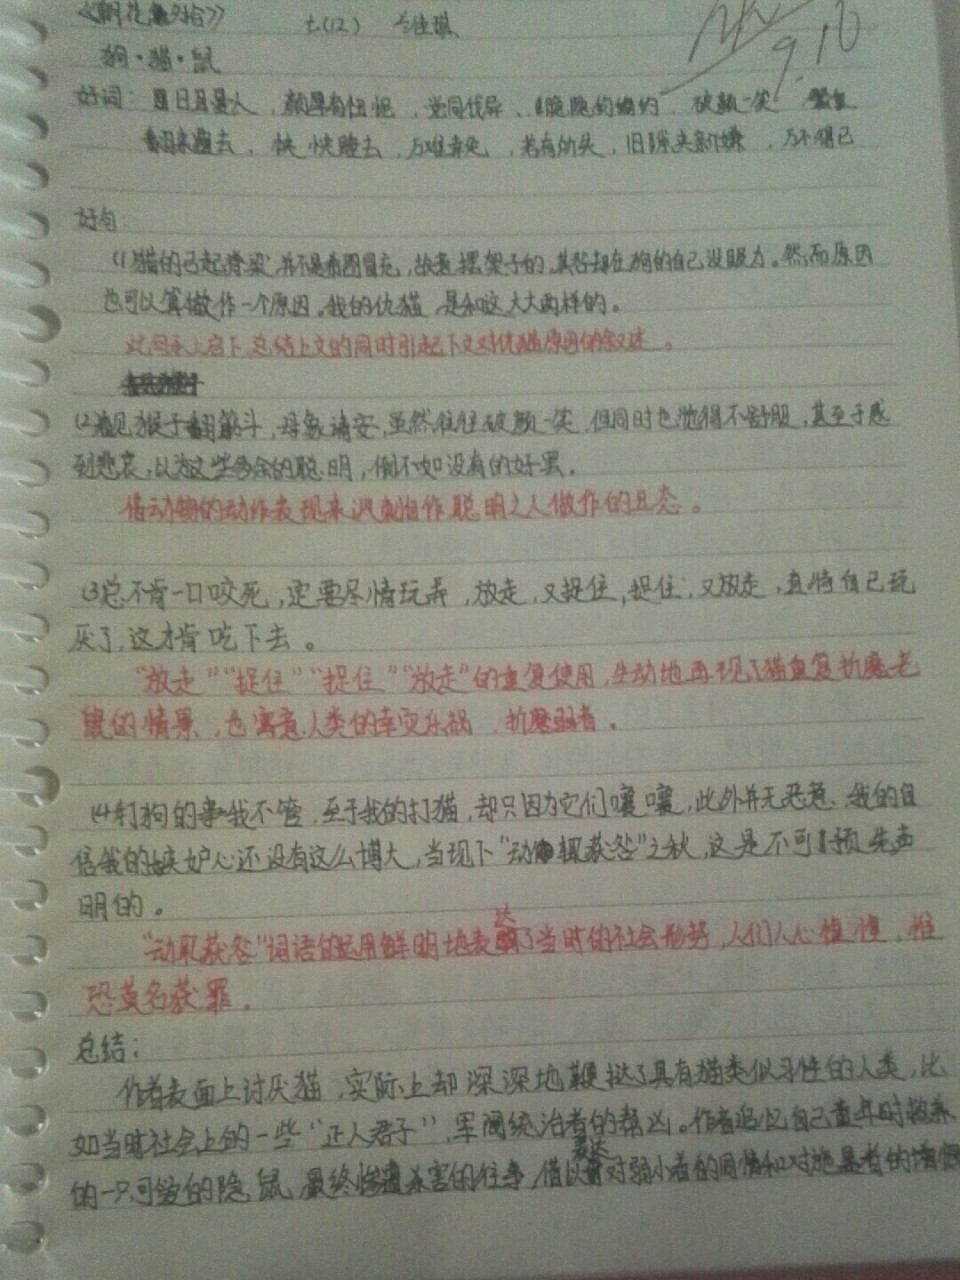 《朝花夕拾》 七(12)
狗·猫·鼠
好词: 颇有忸怩, 党同伐异, 隐隐约约, 破颜一笑
翻来 去, 怏怏 去, 万难幸免, 老有所失, 旧隙夹新嫌, 万不得已
好句:
(1)猫的弓起脊梁, 并不是希图冒充, 故意摆架子的, 其咎却在狗的自己没眼力。然而原因
也可以算做作一个原因。我的仇猫, 是和这大大两样的。
此句承上启下, 总结上文的同时引起下文对仇猫原因的叙述。
(2)看见猴子翻筋斗, 母象请安, 虽然往往破颜一笑, 但同时也觉得不舒服, 甚至于感
到悲哀, 以为这些多余的聪明, 倒不如没有的好罢。
借动物的动作表现来讽刺自作聪明之人做作的丑态。
(3)总不肯一口咬死, 定要尽情玩弄, 放走, 又捉住, 捉住, 又放走, 直待自己玩
厌了, 这才肯吃下去。
“放走”“捉住”“捉住”“放走”的重复使用, 生动地再现了猫重复折磨老
鼠的情景, 也寓意人类的幸灾乐祸, 折磨弱者。
(4)打狗的事我不管, 至于我的打猫, 却只因为它们嚷嚷, 此外并无恶意, 我的自
信我的嫉妒心还没有这么博大, 当现下“动辄获咎”之秋, 这是不可不预先声
明的。
“动辄获咎”词语的运用鲜明地表达了当时的社会形势, 人们人心惶惶, 惟
恐莫名获罪。
总结:
作者表面上讨厌猫, 实际上却深深地鞭挞了具有猫类似习性的人类, 比
如当时社会上的一些“正人君子”, 军阀统治者的帮凶。作者追忆自己童年时救养
的一只可爱的隐鼠, 最终惨遭杀害的往事, 借以表达对弱小者的同情和对施暴者的憎恨